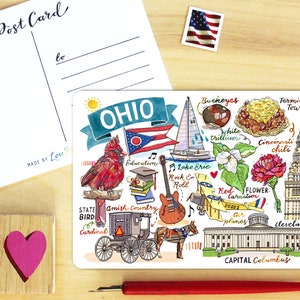 Post Card
to
MADE BY Lou
OHIO
Buckeyes
Cincinnati
chili
Termin
Tow
White
trillium
Education
Lake Erie
Rock &
Roll
Red
carnation
FLOWER
STATE
BIRD
Cardinal
Amish Country
Air
planes
Clevela
CAPITAL Columbus